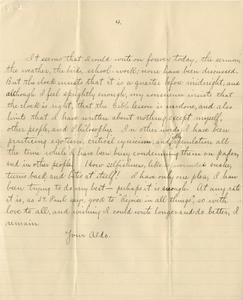 4.
It seems that I could write on forever today, the sermon,
the weather, the birds, school-work, more have been discussed.
But the clock insists that it is a quarter before midnight, and
although I feel sprightly enough, my conscience insists that
the clock is right, that the Bible lesson is undone, and also
hints that I have written about nothing except myself,
other people, and Philosophy. In other words I have been
practicing egotism, critical cynicism, and speculation all
the time while I have been condemning them on paper,
and in other people! How selfishness, like a wounded snake,
turns back and bites at itself! I have only one plea, I have
been trying to do my best — perhaps it is enough. At any rate
it is, as St. Paul says, good to "Rejoice in all things", so with
love to all, and wishing I could write longer and do better, I
remain
Your Aldo.